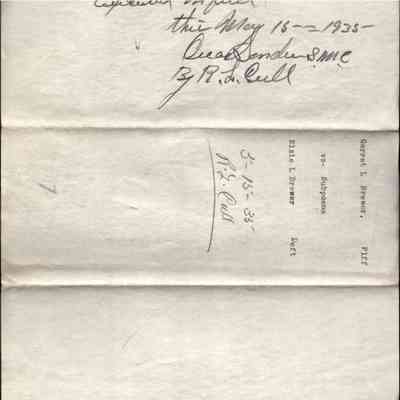 this May 15 - 1935-
By R. L. Cull
Garret L Brewer, Plff
vs- Subpoena
Elsie L Brewer Deft
5-15-35
R. L. Cull